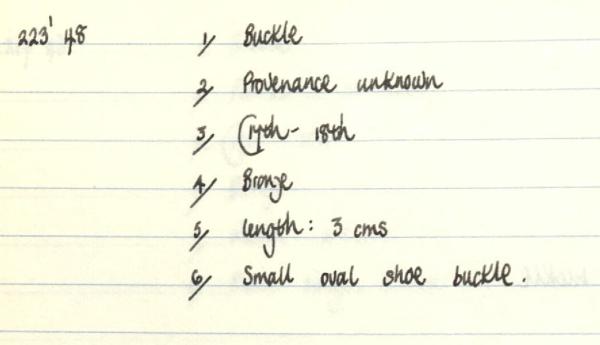 223' 48 1/ Buckle
2/ Provenance unknown
3/ C17th - 18th
4/ Bronze
5/ length: 3 cms
6/ Small oval shoe buckle.